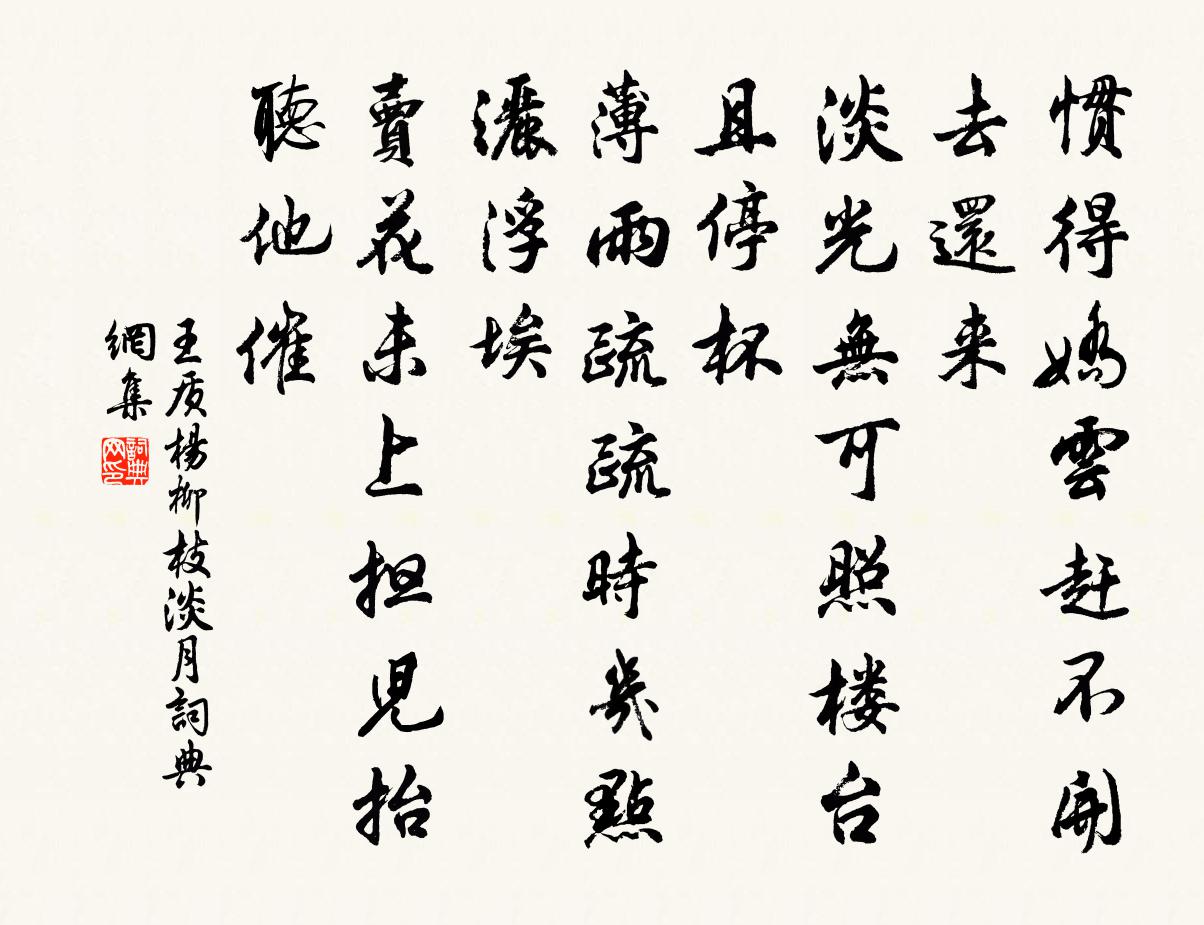 惯得娇雲赶不開
去還来
淡光無可照楼台
且停杯
薄雨疏疏時幾點
灑浮埃
賣花未上担児抬
聽他催
王质楊柳枝淡月詞典
網集
詞典网印